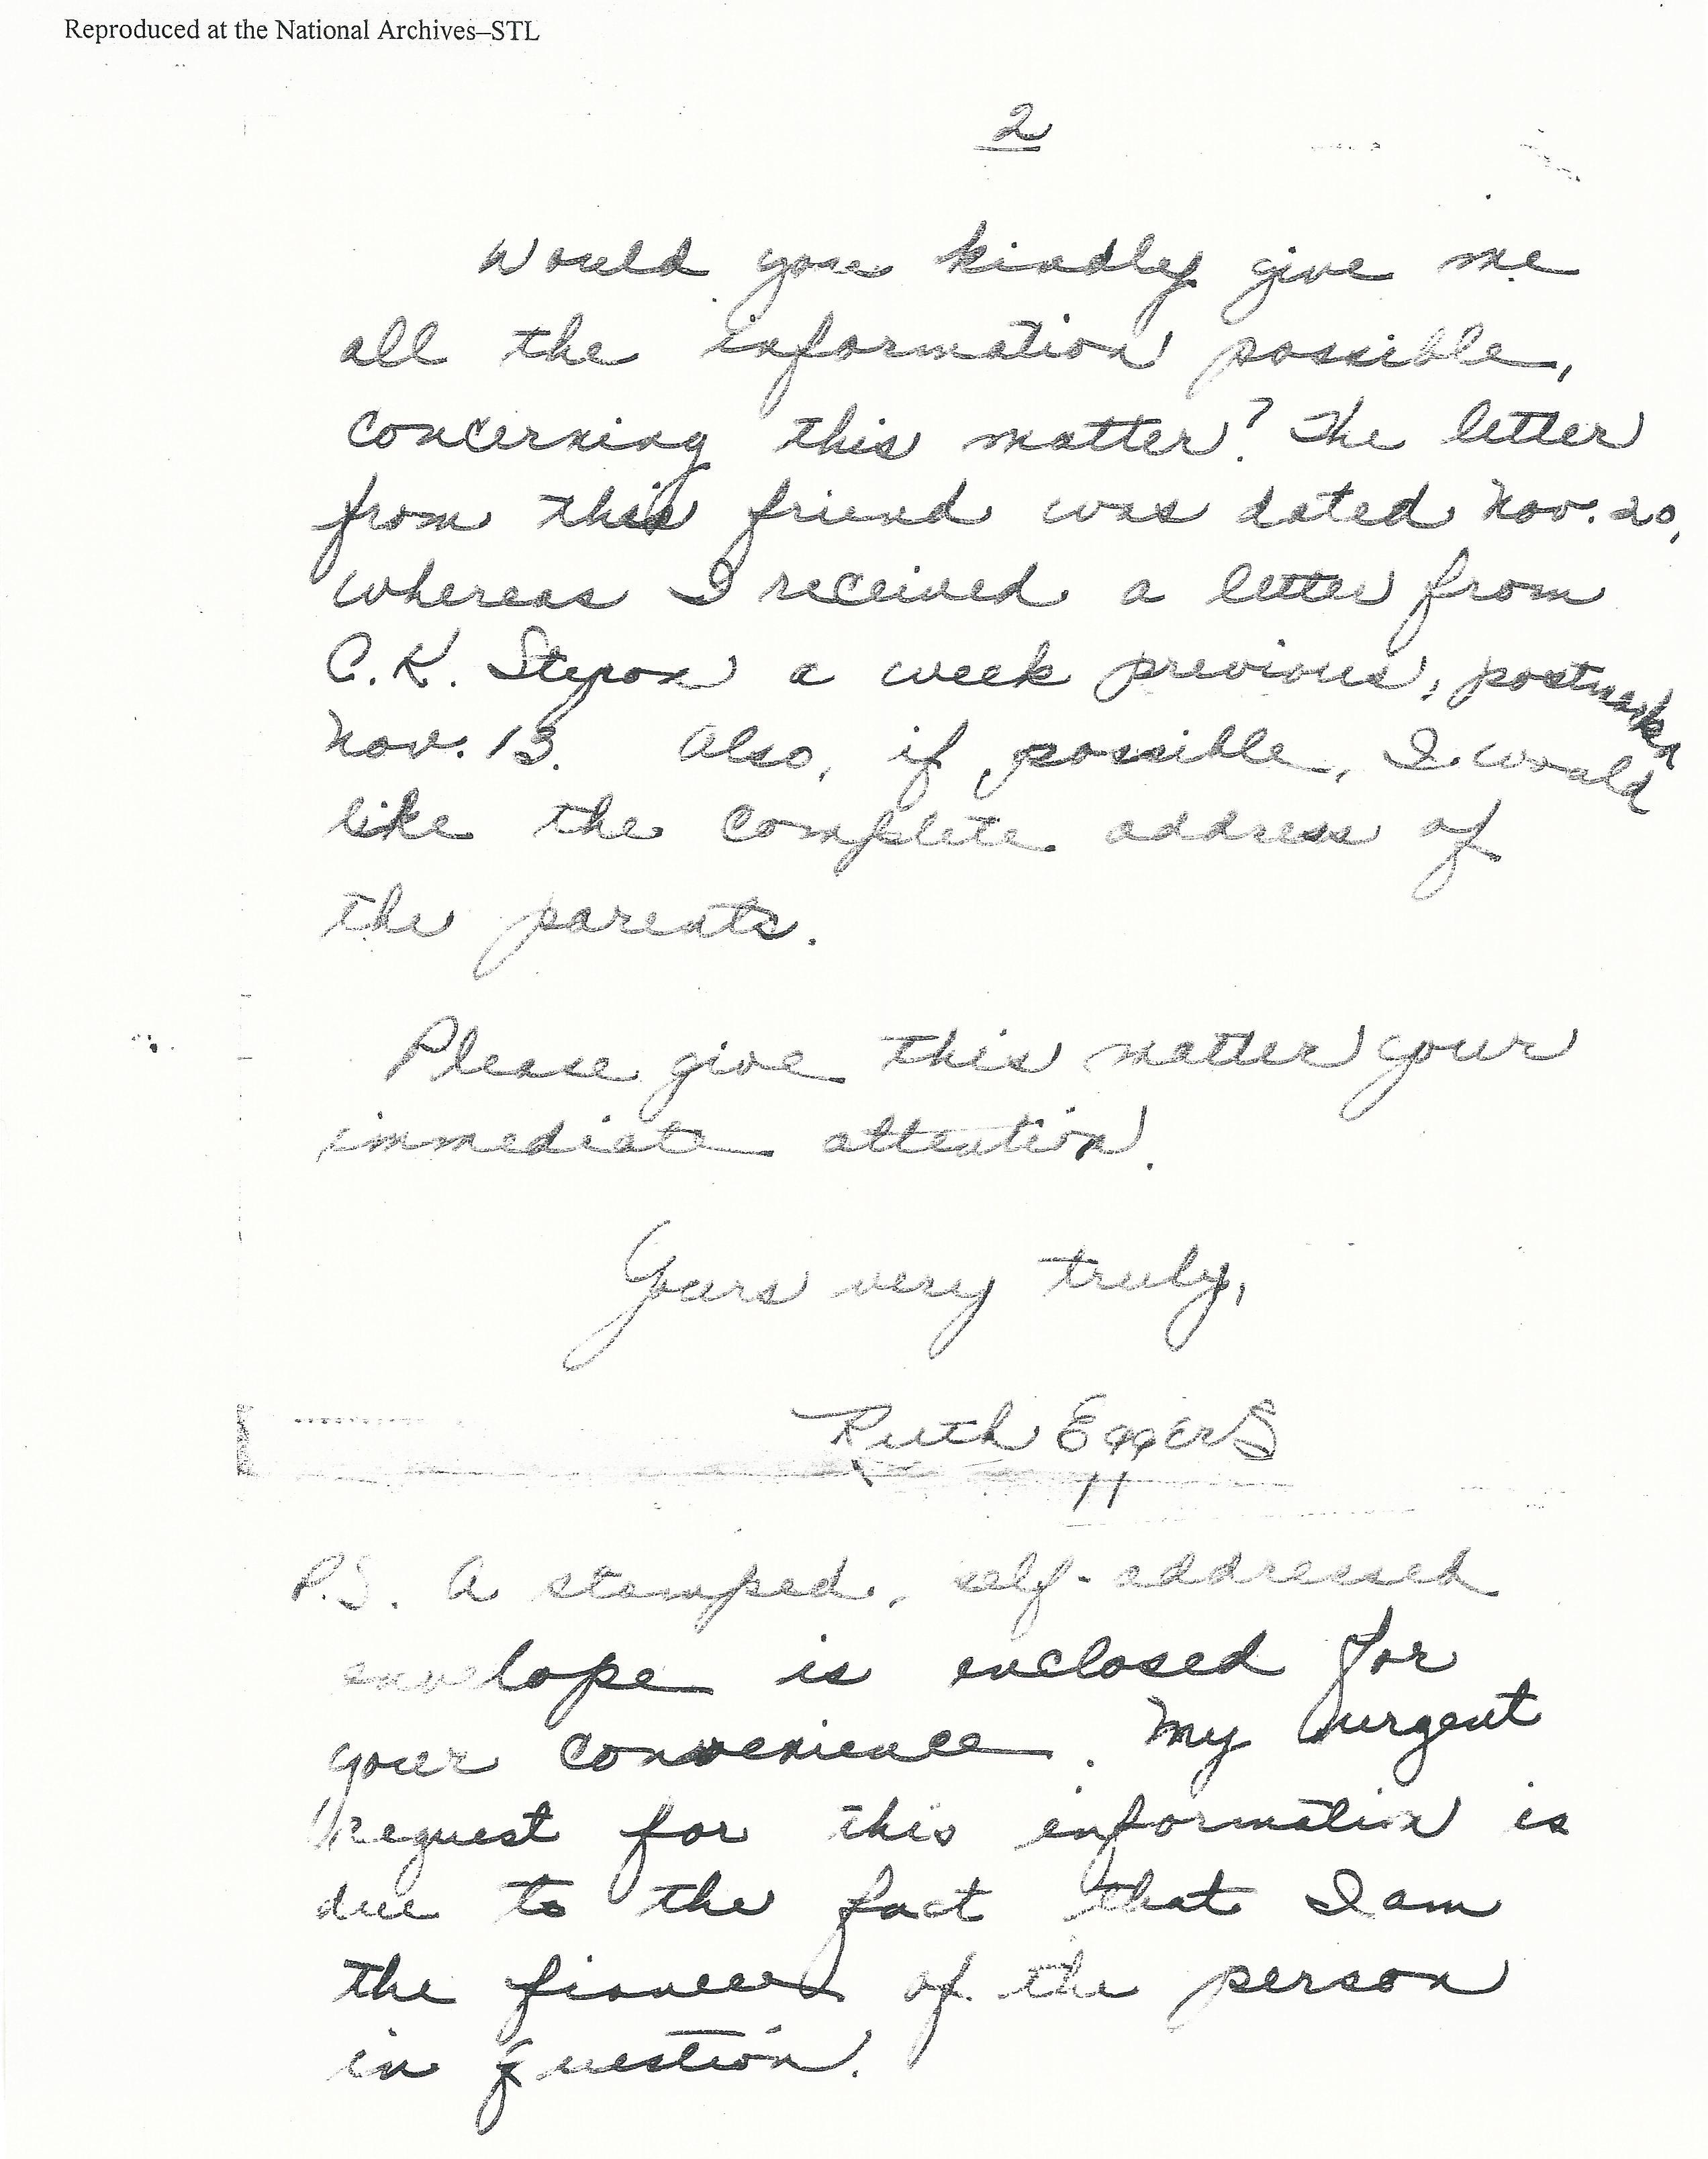 Reproduced at the National Archives–STL
2
Would you kindly give me
all the information possible,
concerning this matter? The letter
from this friend was dated Nov. 20,
whereas I received a letter from
C.K. Styron a week previous, postmarked
Nov. 13. Also, if possible, I would
like the complete address of
the parents.
Please give this matter your
immediate attention.
Yours very truly,
Ruth Eggers
P.S. A stamped, self-addressed
envelope is enclosed for
your convenience. My urgent
request for this information is
due to the fact that I am
the fiancee of the person
in question.